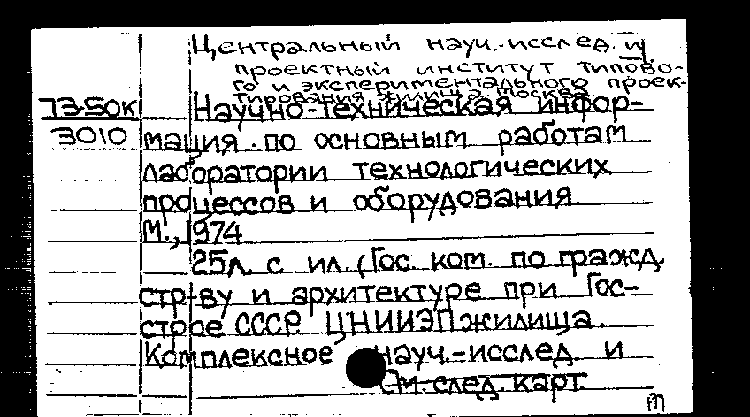 Центральный науч.-исслед. и
проектный институт типово-
го и экспериментального проек-
тирования жилища Москва
73-50к Научно-техническая инфор-
3010 мация по основным работам
лаборатории технологических
процессов и оборудования
М., 1974
25л. с ил. (Гос. ком. по гражд.
стр-ву и архитектуре при Гос-
строе СССР. ЦНИИЭП жилища.
Комплексное науч.-исслед. и
См. след. карт.